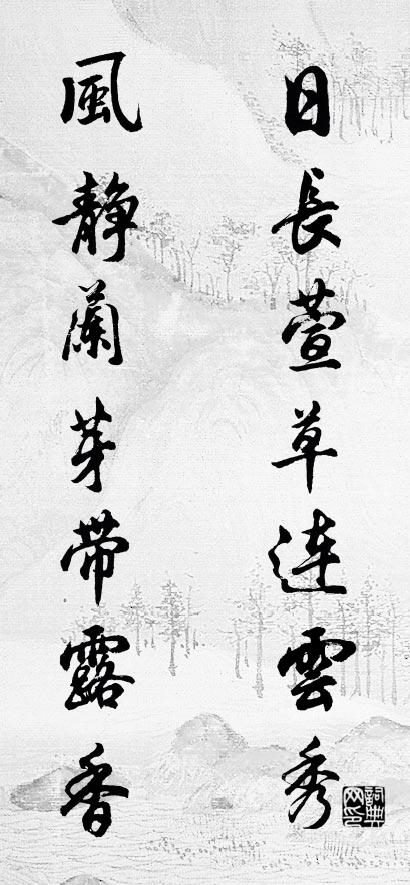 日長萱草連雲秀
風靜蘭芽帶露香
詞典網印